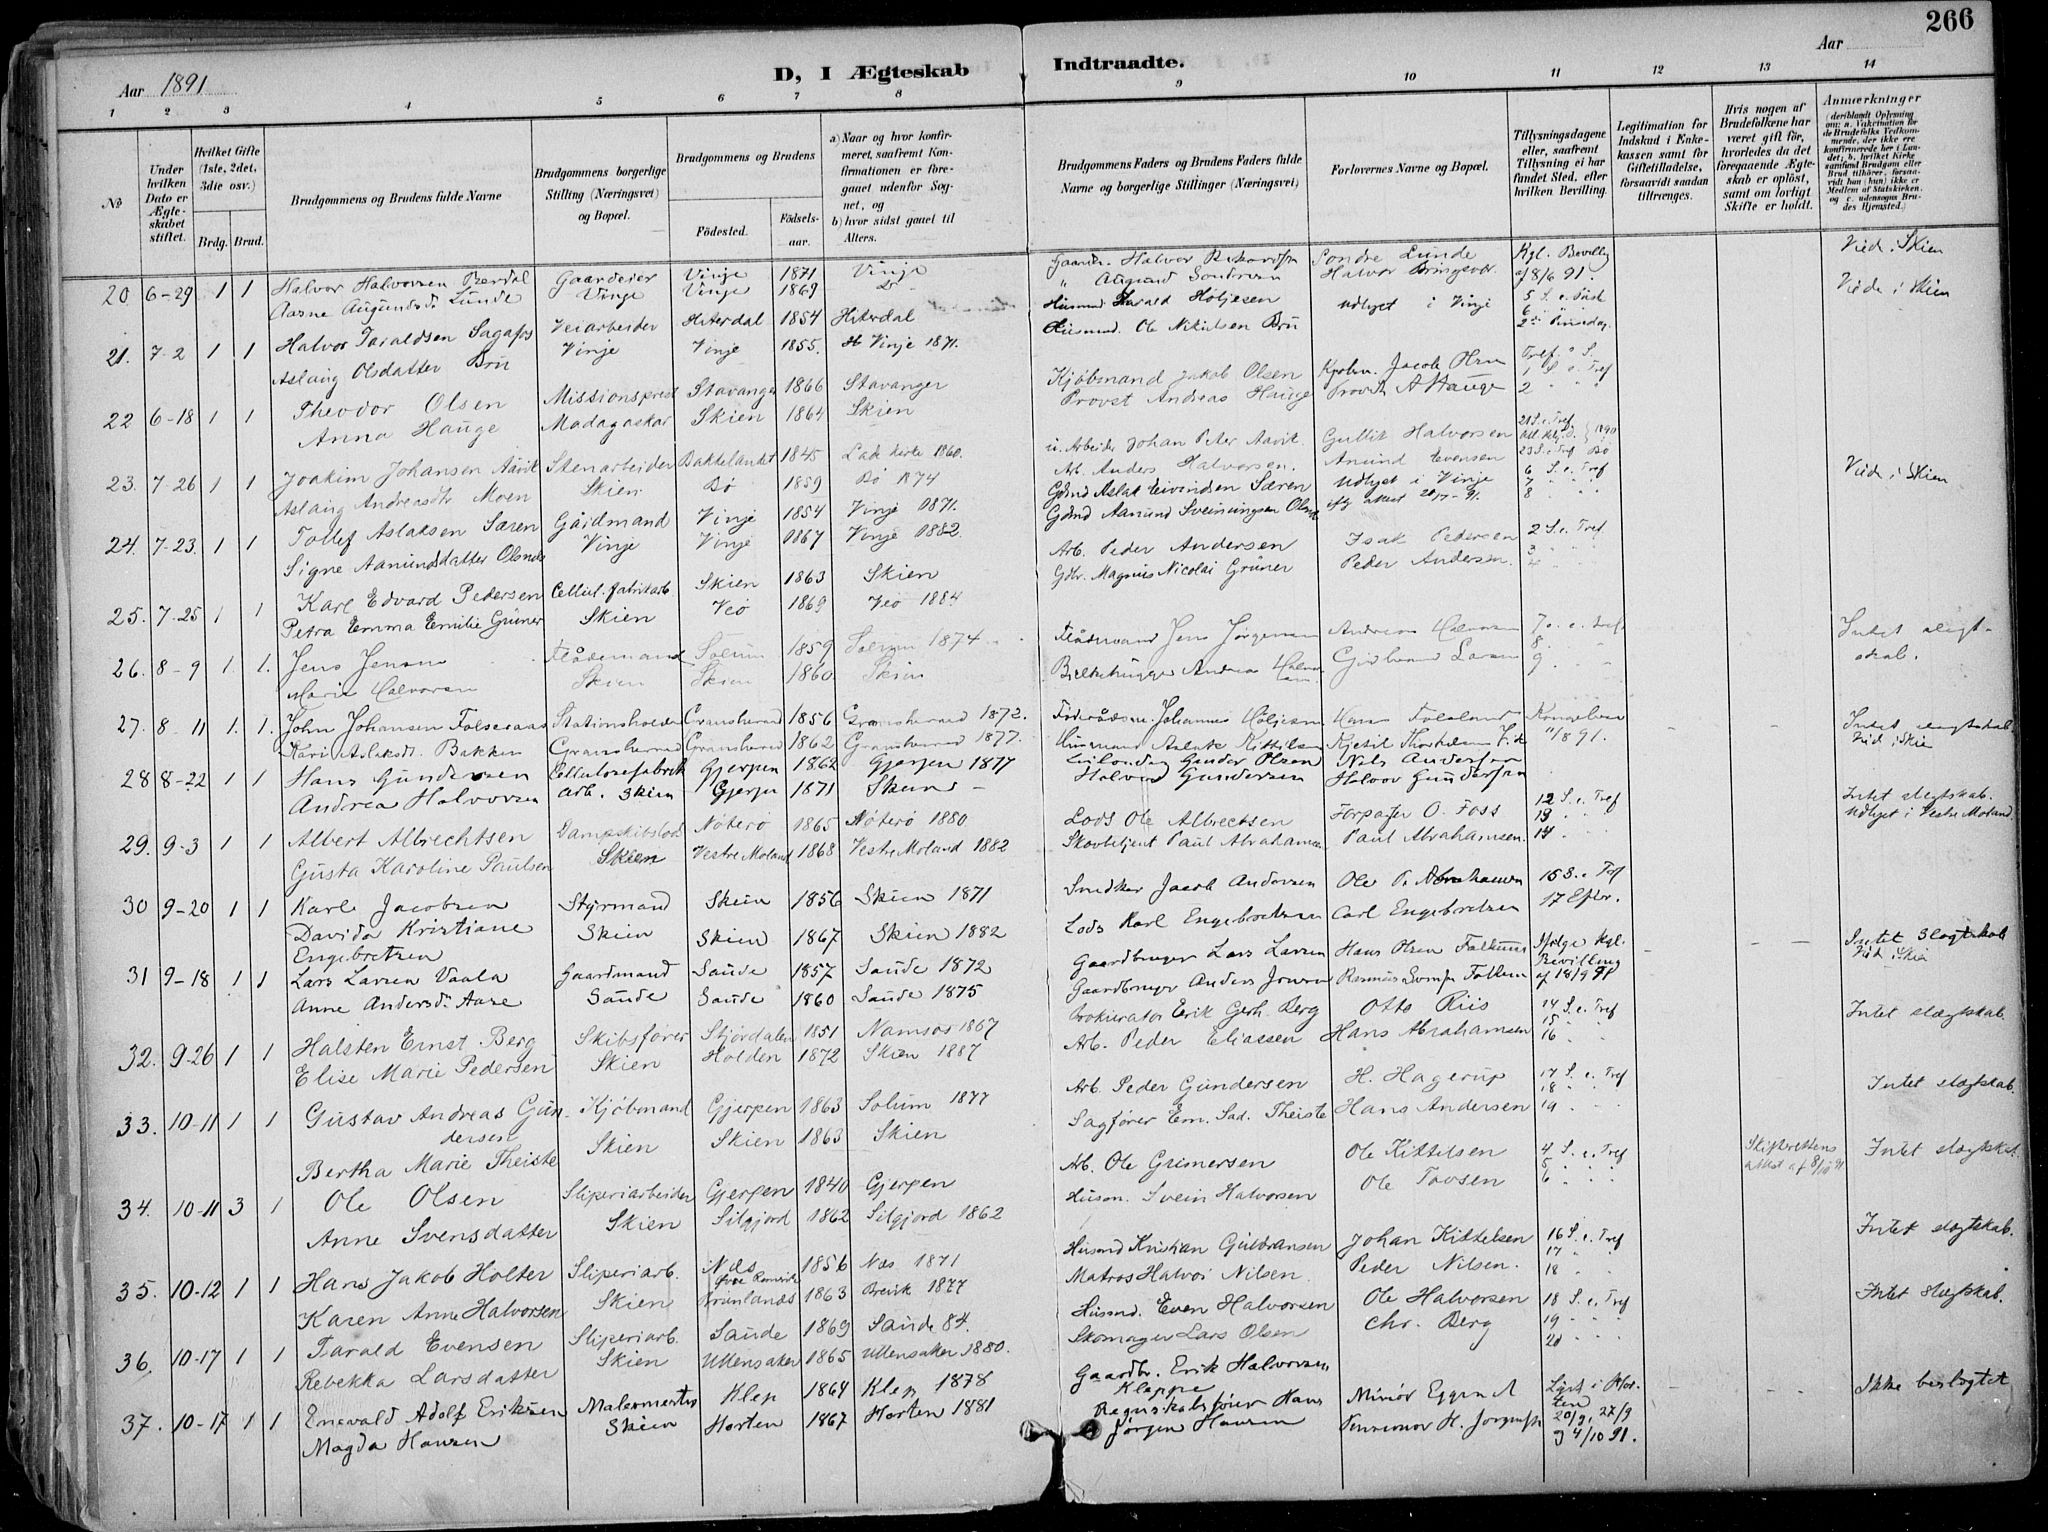 266
Aar 1891
D, I Ægteskab Indtraadte.
Aar
1 2 3 4 5 6 7 8 9 10 11 12 13 14
No
Under hvilken Dato er Ægteskabet stiftet.
Hvilket Gifte (1ste, 2det, 3die osv.)
Brdg. Brud.
Brudgommens og Brudens fulde Navne
Brudgommens borgerlige Stilling (Næringsvei) og Bopæl.
Brudgommens og Brudens
Födested.
Födselsaar.
a) Naar og hvor konfirmeret, saafremt Konfirmationen er foregaaet udenfor Sognet, og
b) hvor sidst gaaet til Alters.
Brudgommens Faders og Brudens Faders fulde Navne og borgerlige Stillinger (Næringsvei)
Forlovernes Navne og Bopæl.
Tillysningsdagene eller, saafremt Tillysning ei har fundet Sted, efter hvilken Bevilling.
Legitimation for Indskud i Enkekassen samt for Giftetilladelse, forsaavidt saadan tiltrænges.
Hvis nogen af Brudefolkene har været gift för, hvorledes da det foregaaende Ægteskab er oplöst, samt om lovligt Skifte er holdt.
Anmærkninger (deriblandt Oplysning om: a. Vakcination for de Brudefolks Vedkommende, der ikke ere konfirmerede her i Landet; b. hvilket Kirkesamfund Brudgom eller Brud tilhörer, forsaavidt han (hun) ikke er Medlem af Statskirken, og c. udensogns Brudes Hjemsted.)
20 6-29 1 1 Halvor Halvorsen Berdal Gaardeier Vinje 1871 Vinje Gaardm. Halvor Sondre Lunde Kgl. Bevilling Vied i Skien
Aasne Augundsdr Lunde Vinje Vinje 1869 Do " Augund Sondresen Halvor Bringsver af 8/6 91.
21. 7-2 1 1 Halvor Taraldsen Sagafos Veiarbeider Hiterdal 1854 Hiterdal Husmd Tarald Holjesen Udlyst i Vinje 5 S. e. Paask Viede i Skien
Aslaug Olsdatter Bru Vinje Vinje 1855. Vinje 1871. Husmd. Ole Nikulsen Bru 6 2den Pinsedag.
22 6-18 1 1 Theodor Olsen Missionsprest Stavanger 1866 Stavanger Kjøbmand Jakob Olsen Kjøbm. Jacob Olsen Tref. S. 1 S. e. Tref
Anna Hauge Madagaskar Skien 1864 Skien Provst Andreas Hauge Provst A Hauge 2 " " "
23. 7-26 1 1 Joakim Johansen Aavik Stenarbeider Bakkelandet 1845 Lade kirke 1860. Arbeider Johan Peter Aavik. Gullik Halvorsen 21 S. e. Tref 1890
Aslaug Andreasdtr Moen Skien Bø 1859 Bø 1874 Arb. Anders Halvorsen. Anund Evensen 23 S. e. Tref Bø
24. 7-23. 1 1 Tollef Aslaksen Særen Gaardmand Vinje 1854 Vinje 1871. Gdmd Aslak Eivindsen Særen Udlyst i Vinje 6 S. e. Tref Vied i Skien
Signe Aanundsdatter Olsnes Vinje Vinje 1867 Vinje 1882. Gdmd Aanund Sveinungsen Olsnes ifg attest 20/7-91. 7 8
25. 7-25 1 1 Karl Edvard Pedersen Cellul. fabrikarb. Skien 1863 Skien Arb. Peder Andersen Isak Pedersen 2 S. e. Tref
Petra Emma Emilie Grüner Skien Veø 1869 Veø 1884 Gdbr. Magnus Nicolai Grüner Peder Andersen. 3 4
26. 8-9 1. 1. Jens Jensen Flådemand Solum 1859 Solum 1874 Flådemand Jens Jørgensen Andreas Halvorsen 7 S. e. Tref Intet slegtskab.
Marie Halvorsen Skien Skien 1860 Skien Andreas Halvorsen Larsen 8. 9
27. 8-11 1. 1. John Johansen Folseraas Stationsholder Gransherred 1856 Gransherred 1872. Føderådsm. Johannes Höljesen Hans Kongebrev Intet slegtskab.
Kari Aslaksdt. Bakken Gransherred Gransherred 1862 Gransherred 1877. Husmand Aslak Kittilsen Kjetil Thorkelsen "/8 91. Vied i Skien
28 8-22 1 1 Hans Gundersen Cellulosefabrik Gjerpen 1862 Gjerpen 1877 Gunder Olsen Nils Andersen
Andrea Halvorsen Arb. Skien Gjerpen 1871 Skien Halvor Gundersen Halvor Gundersen
29. 9-3 1 1 Albert Albrechtsen Dampskibslods Nøterø 1865 Nøterø 1880 Lods Ole Albrectsen O. Foss 12 S. e. Tref Intet slegtskab.
Gusta Karoline Paulsen Skien Vestre Moland 1868 Vestre Moland 1882 Skovbetjent Paul Abrahamsen Paul Abrahamsen. 13 14 Udlyst i Vestre Moland.
30 9-20 1 1 Karl Jacobsen Styrmand Skien 1856 Skien 1871 Snedker Jacob Andersen Ole P. Abrahamsen 15 S. e. Tref
Davida Kristiane Engebretsen Skien Skien 1867 Skien 1882 Lods Karl Engebretsen Carl Engebretsen 17 Efter.
31 9-18 1 1 Lars Larsen Vaala Gaardmand Saude 1857 Saude 1872 Gaardbruger Lars Larsen Hans Olsen Falkum Ifølge kgl. Bevilling Intet Slegtskab
Anne Andersdr. Aase Saude Saude 1860 Saude 1875 Gaardbruger Anders Rasmus af 18/9 91 Vied i Skien
32. 9-26 1 1 Halsten Ernst Berg Skibsfører Stjørdalen 1851 Namsos 1867 Prokurator Erik Gerh. Berg Otto Riis 14 S. e. Tref Intet slægtskab.
Elise Marie Pedersen Skien Holden 1872 Skien 1887 Arb. Peder Eliassen Hans Abrahamsen 15 16
33. 10-11 1 1 Gustav Andreas Gundersen Kjøbmand Gjerpen 1863 Solum 1877 Arb. Peder Gundersen H. Hagerup 17 S. e. Tref Intet slægtskab.
Bertha Marie Theiste Skien Skien 1863 Skien Sagfører Em. Sad. Theiste Hans Andersen 18 19
34. 10-11 3 1 Ole Olsen Sliperiarbeider Gjerpen 1840 Gjerpen Arb. Ole Grimersen Ole Kittelsen 4 S. e. Tref Skifterettens attest af 8/10 91 Intet slægtskab.
Anne Svensdatter Skien Silgjord 1862 Silgjord 1862 Husm. Svein Halvorsen Ole Tovsen 5 6
35. 10-12 1 1 Hans Jakob Holter Sliperiarb. Næs Øvre Romerike 1856 Næs 1871 Husmd Kristian Gulbransen Johan Kittelsen 16 S. e. Tref Intet slægtskab.
Karen Anne Halvorsen Skien Brunlanæs 1863 Brevik 1877 Matros Halvor Nilsen Peder Nilsen. 17 18
36. 10-17 1 1 Tarald Evensen Sliperiarb. Saude 1869 Saude 84. Husmd. Even Halvorsen Ole Halvorsen 18 S. e. Tref Intet slægtskab.
Rebekka Larsdatter Skien Ullensaker 1865 Ullensaker 1880. Skomager Lars Olsen Chr. Berg 19 20
37. 10-17 1 1 Enevald Adolf Eriksen Malermester Klep 1864 Klep 1878 Gaardbr. Erik Halvorsen Kleppe Minør Lyst i Horten Ikke beslægtet
Magda Hansen Skien Horten 1867 Horten 1881 Regnskabsfører Hans Jørgen Hansen H. Jørgensen 20/9, 27/9 og 4/10 91.